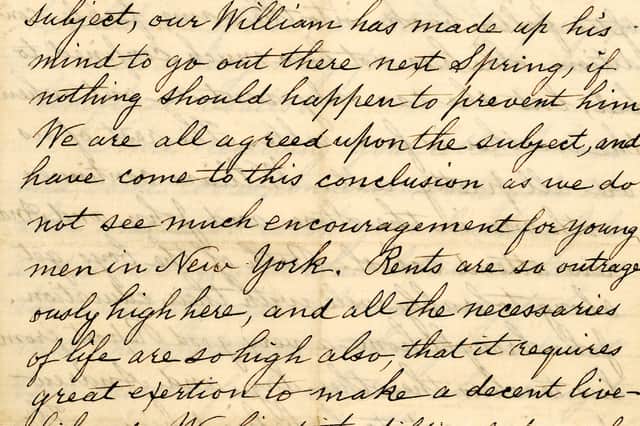 subject, our William has made up his
mind to go out there next Spring, if
nothing should happen to prevent him
We are all agreed upon the subject, and
have come to this conclusion as we do
not see much encouragement for young
men in New York. Rents are so outrage
ously high here, and all the necessaries
of life are so high also, that it requires
great exertion to make a decent live-